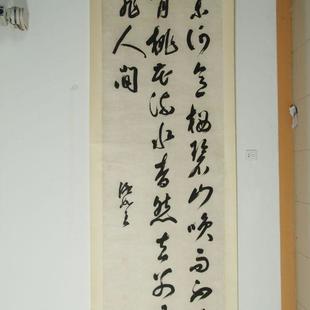 何意栖碧山咲而
桃花流水杳然去别
非人間